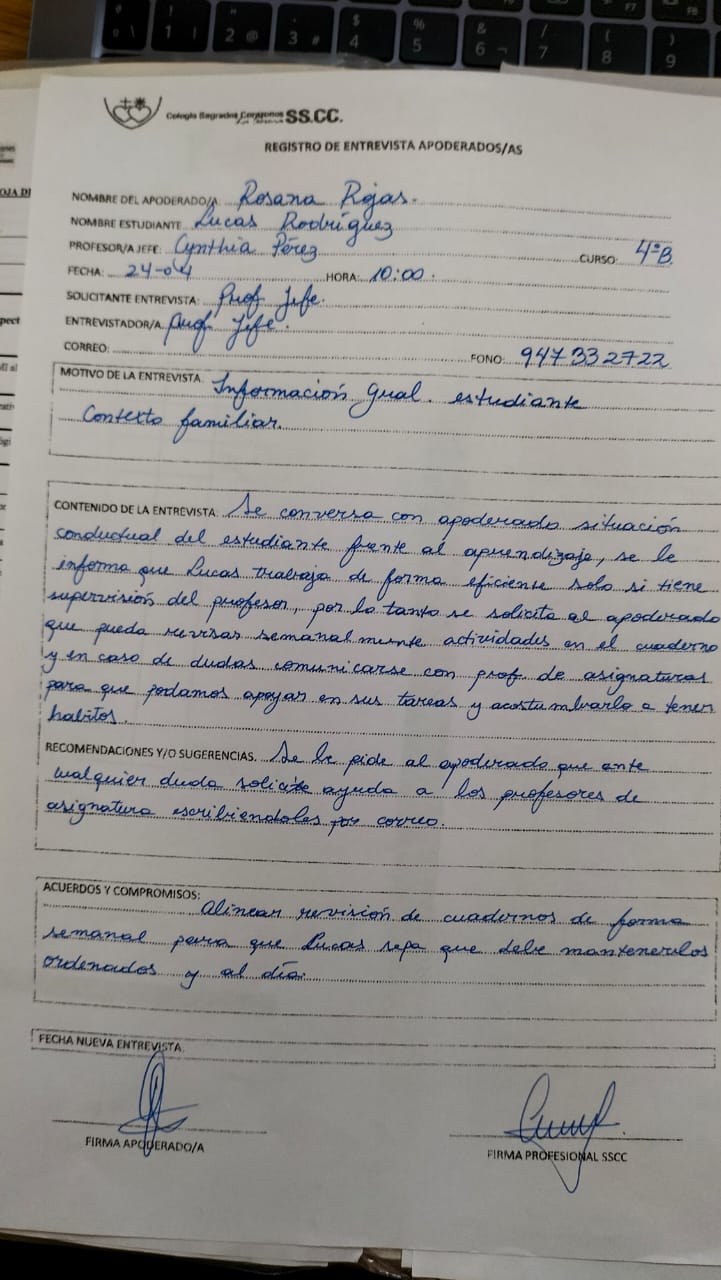 Colegio Sagrados Corazones SS.CC.
REGISTRO DE ENTREVISTA APODERADOS/AS
NOMBRE DEL APODERADO/A: Rosana Rojas.
NOMBRE ESTUDIANTE Lucas Rodríguez
PROFESOR/A JEFE: Cynthia Pérez CURSO: 4°B
FECHA: 24-04 HORA: 10:00.
SOLICITANTE ENTREVISTA: Prof Jefe.
ENTREVISTADOR/A Prof Jefe.
CORREO: FONO: 947332722
MOTIVO DE LA ENTREVISTA. Información gral. estudiante
Contexto familiar.
CONTENIDO DE LA ENTREVISTA. Se conversa con apoderado situación
conductual del estudiante frente al aprendizaje, se le
informa que Lucas trabaja de forma eficiente solo si tiene
supervisión del profesor, por lo tanto se solicita al apoderado
que pueda revisar semanalmente actividades en el cuaderno
y en caso de dudas comunicarse con prof. de asignaturas
para que podamos apoyar en sus tareas y acostumbrarlo a tener
habitos.
RECOMENDACIONES Y/O SUGERENCIAS. Se le pide al apoderado que ante
cualquier duda solicite ayuda a los profesores de
asignatura escribiendoles por correo.
ACUERDOS Y COMPROMISOS:
Alinear revisión de cuadernos de forma
semanal para que Lucas sepa que debe mantenerlos
ordenados y al día.
FECHA NUEVA ENTREVISTA.
FIRMA APODERADO/A
FIRMA PROFESIONAL SSCC